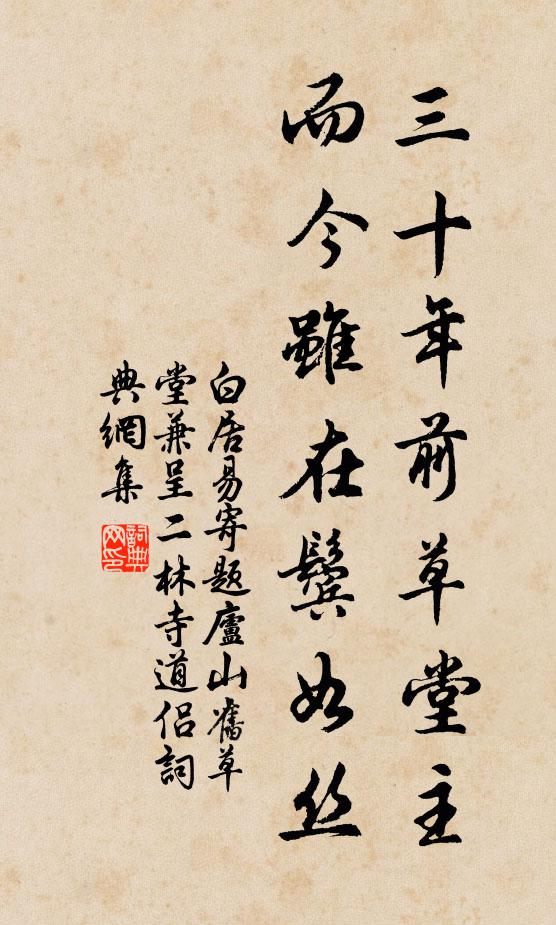 三十年前草堂主
而今雖在鬢如丝
白居易寄題廬山舊草
堂兼呈二林寺道侣詞
典網集
詞典
网印